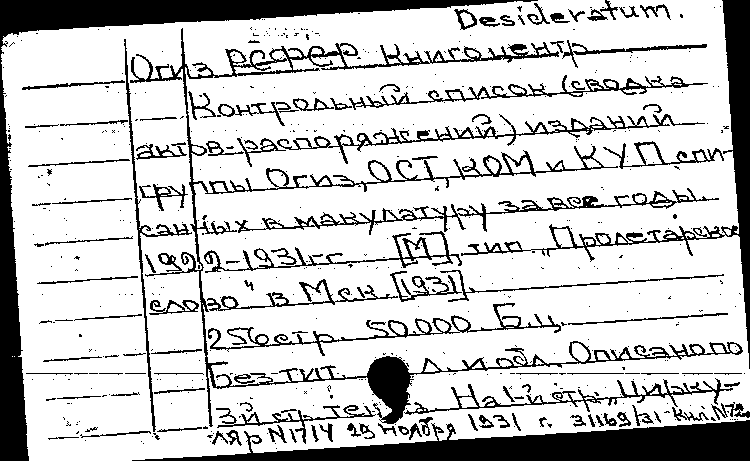 Desideratum.
Огиз РСФСР Книгоцентр
Контрольный список (сводка
актов-распоряжений) изданий
группы Огиз, ОСТ, КОМ и КУП спи-
санных в макулатуру за все годы.
1922-1931 гг. [М], тип. „Пролетарское
слово" в Мск. [1931].
256 стр. 50.000. Б.ц.
Без тит. л. и обл. Описано по
3й стр. текста. На 1-й стр. „Цирку-
ляр N 1714 29 ноября 1931 г. 31169/31 Кн.л. N72